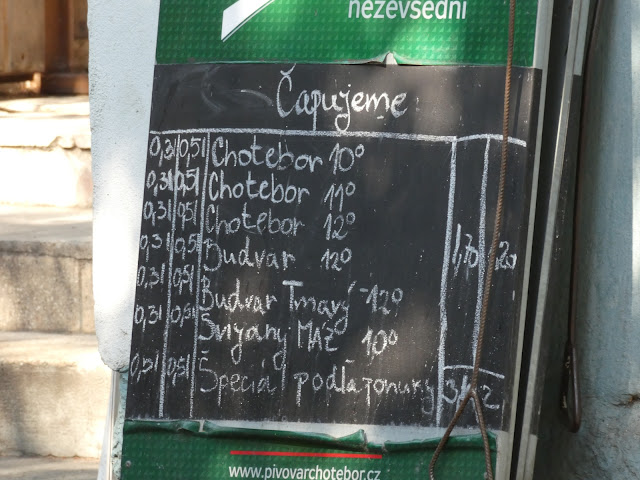 nezevšední
Čapujeme
0,3l 0,5l Chotebor 10°
0,3l 0,5l Chotebor 11°
0,3l 0,5l Chotebor 12°
0,3l 0,5l Budvar 12° 1,70
0,3l 0,5l Budvar Tmavý 12°
0,3l 0,5l Svijany MÁZ 10°
0,5l Špeciál podľa ponuky
www.pivovarchotebor.cz